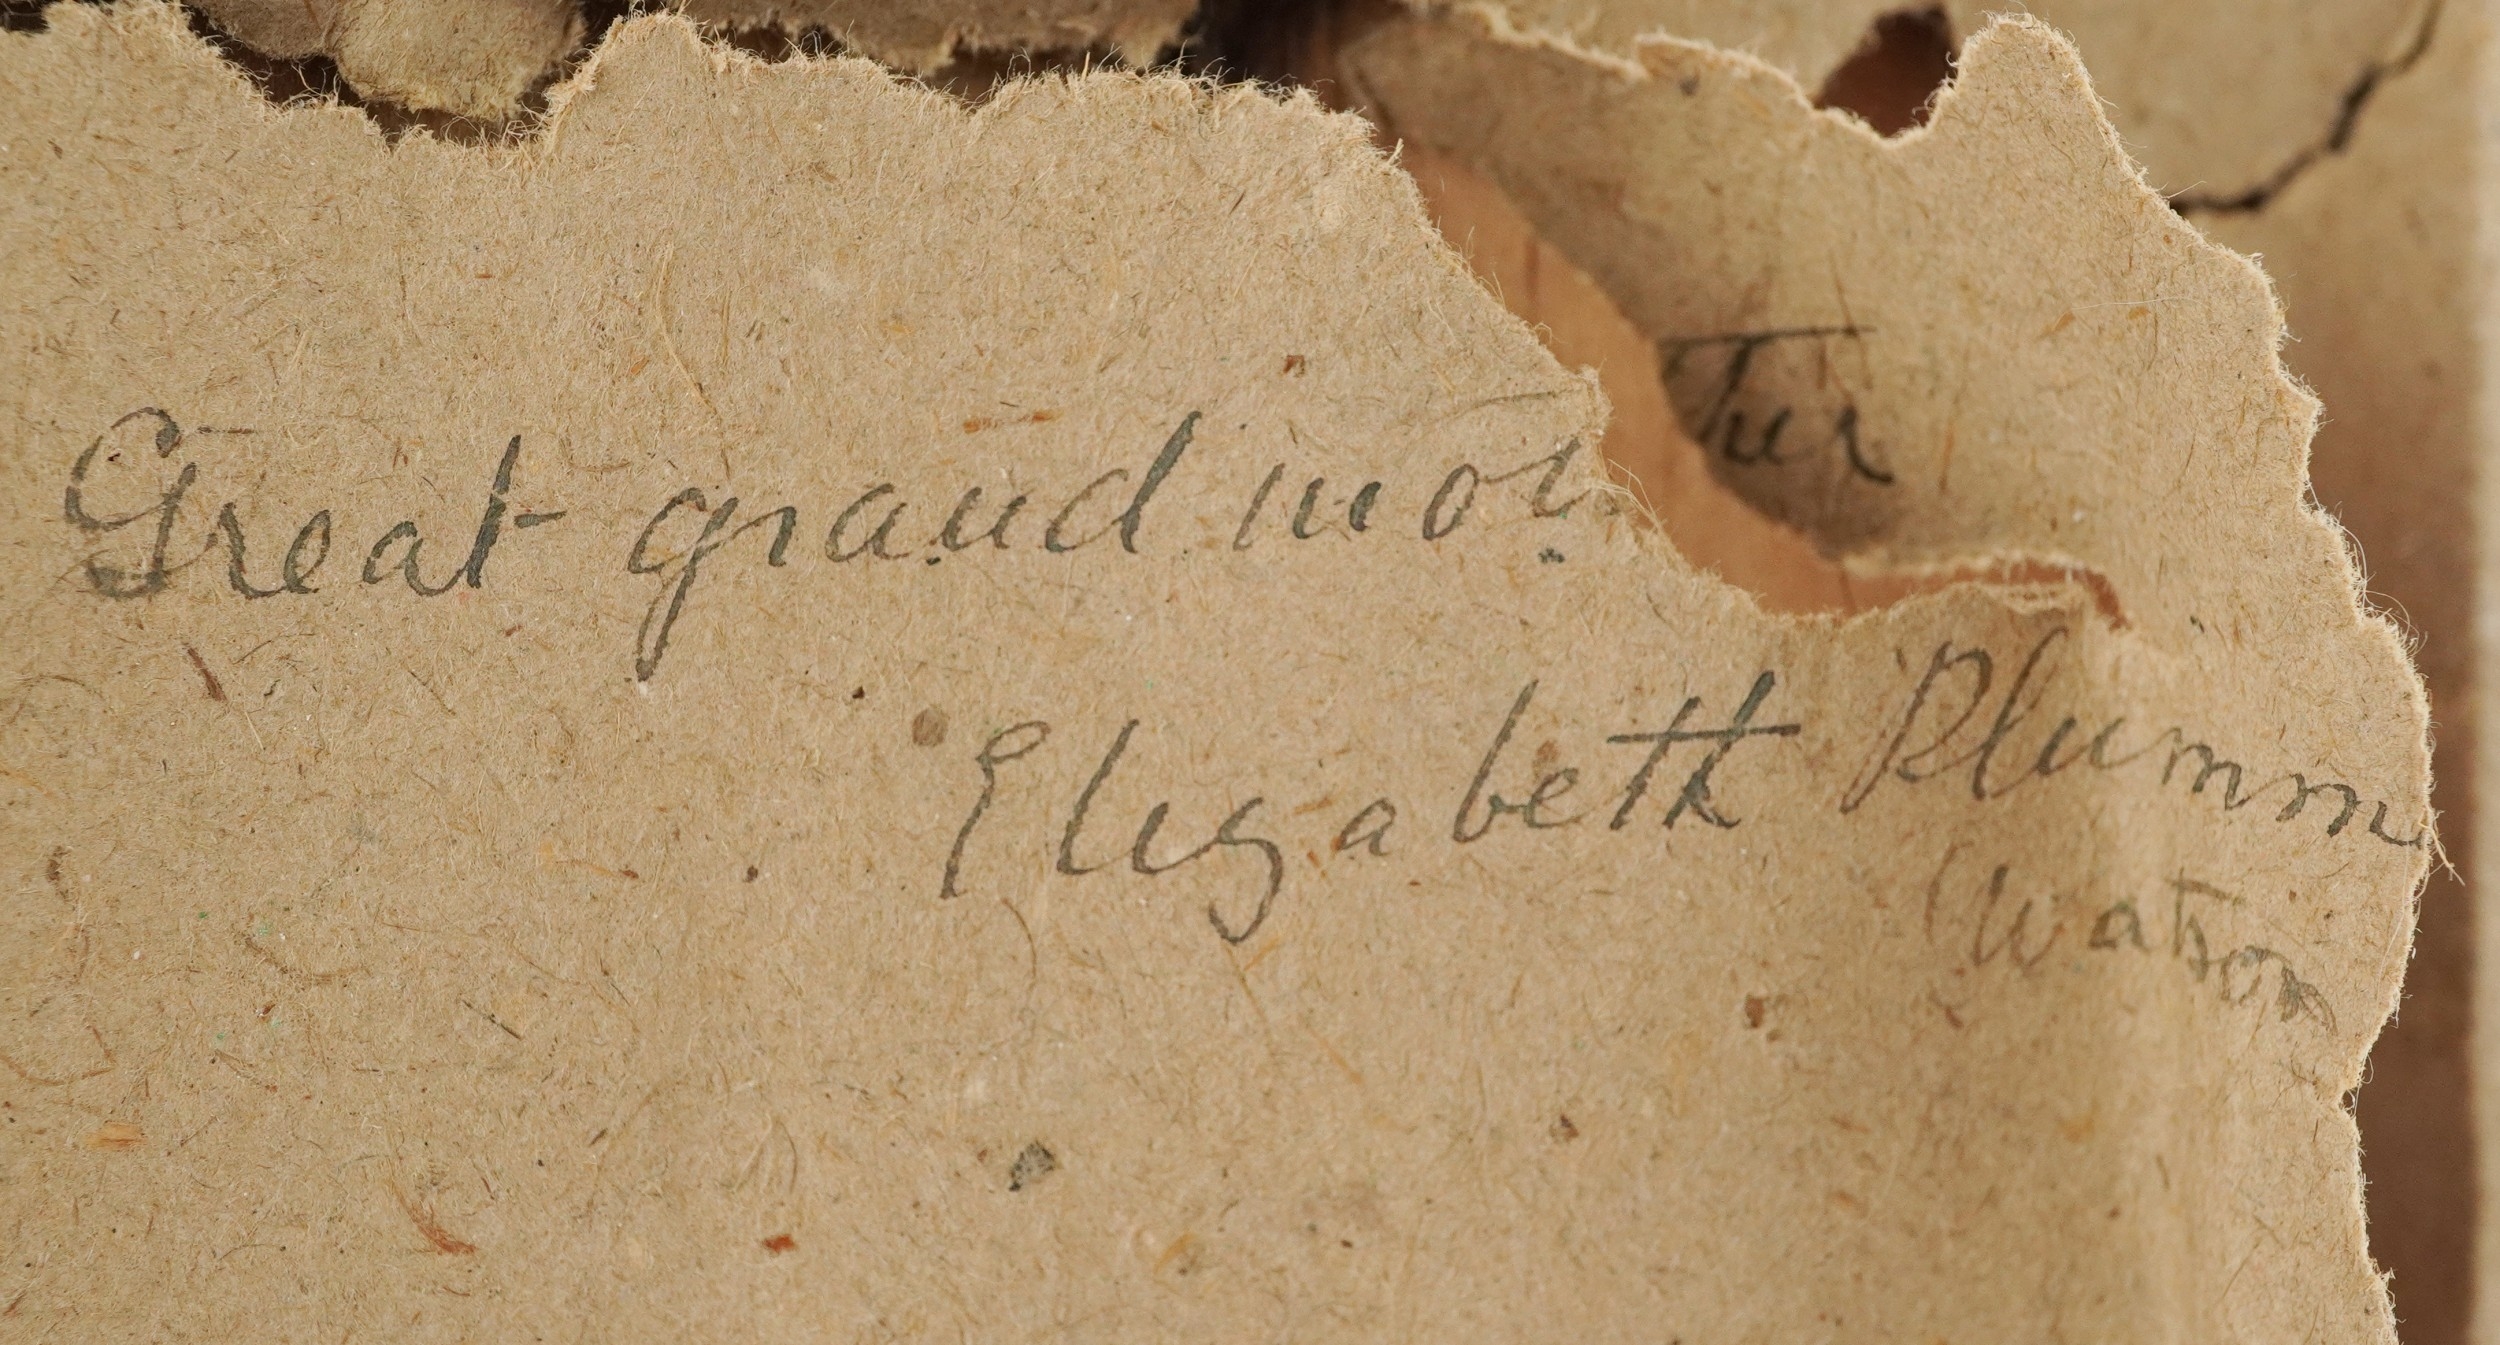 Great grand mot
Tur
Elizabeth Plumm
(Watson